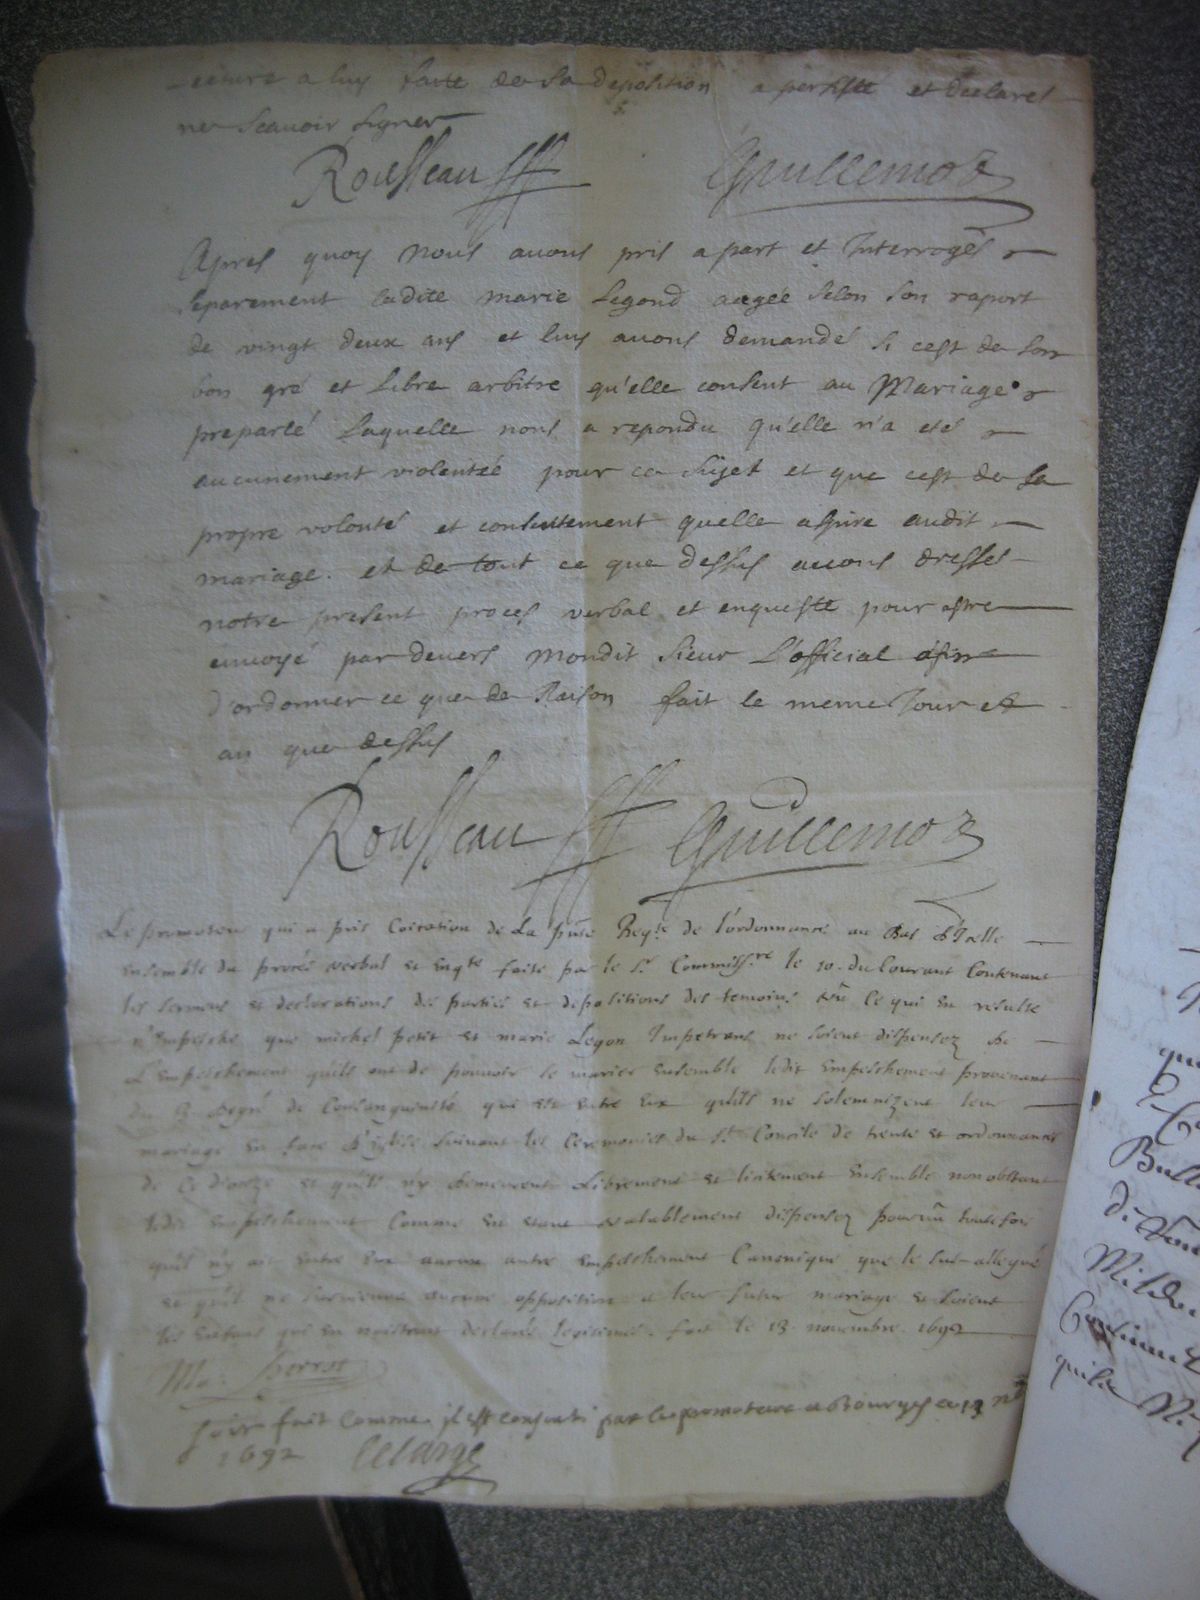 Lecture a luy faite de sa deposition a persisté et declaré
ne scavoir signer
Rousseau Guillemoz
Apres quoy nous avons pris a part et Interrogés
separement ladite marie Legond aagée selon son raport
de vingt deux ans et luy avons demandés si cest de son
bon gré et Libre arbitre qu'elle consent au Mariage
preparlé Laquelle nous a repondu qu'elle n'a estés
aucunement violentée pour ce sujet et que cest de sa
propre volonté et consentement quelle aspire audit
mariage. et de tout ce que dessus avons dressés
notre present proces verbal et enqueste pour estre
envoyé par devers mondit sieur L'official afin
d'ordonner ce que de Raison fait le meme Jour et
an que dessus
Rousseau Guillemoz
Le promoteur qui a pris Co̅ica̅on de La pu̅te Reqte de l'ordonnance au Bas d'Icelle
Ensemble du procés verbal et Enqte faite par le Sr Commissre le 10. du Courant Contenant
les sermens et declarations des parties et depositions des temoins veu Ce qui En resulte
n'Empesche que michel petit et marie Legon Impetrans ne soient dispensez de
L'Empeschement quils ont de pouvoir se marier Ensemble ledit Empeschement provenant
du 3. degré de Consanguinité qui est Entre Eux quils ne solemnizent leur
mariage En face d'Eglise suivant les Ceremonies du St Concile de trente et ordonnances
de Ce dioceze et qu'ils n'y demeurent Librement et licitement Ensemble nonobstant
ledit Empeschement Comme En estant valablement dispensez pourvu̅ toutefois
quil n'y ait Entre Eux aucun autre Empeschement Canonique que le sus-allegué
et qu'il ne survienne aucune opposition a leur futur mariage et soient
les Enfans qui En naistront declarés legitimes. fait le 13. novembre. 1692
soit fait Comme il est consenti par le promoteur a Bourges ce 13 nbre
1692 Lelarge